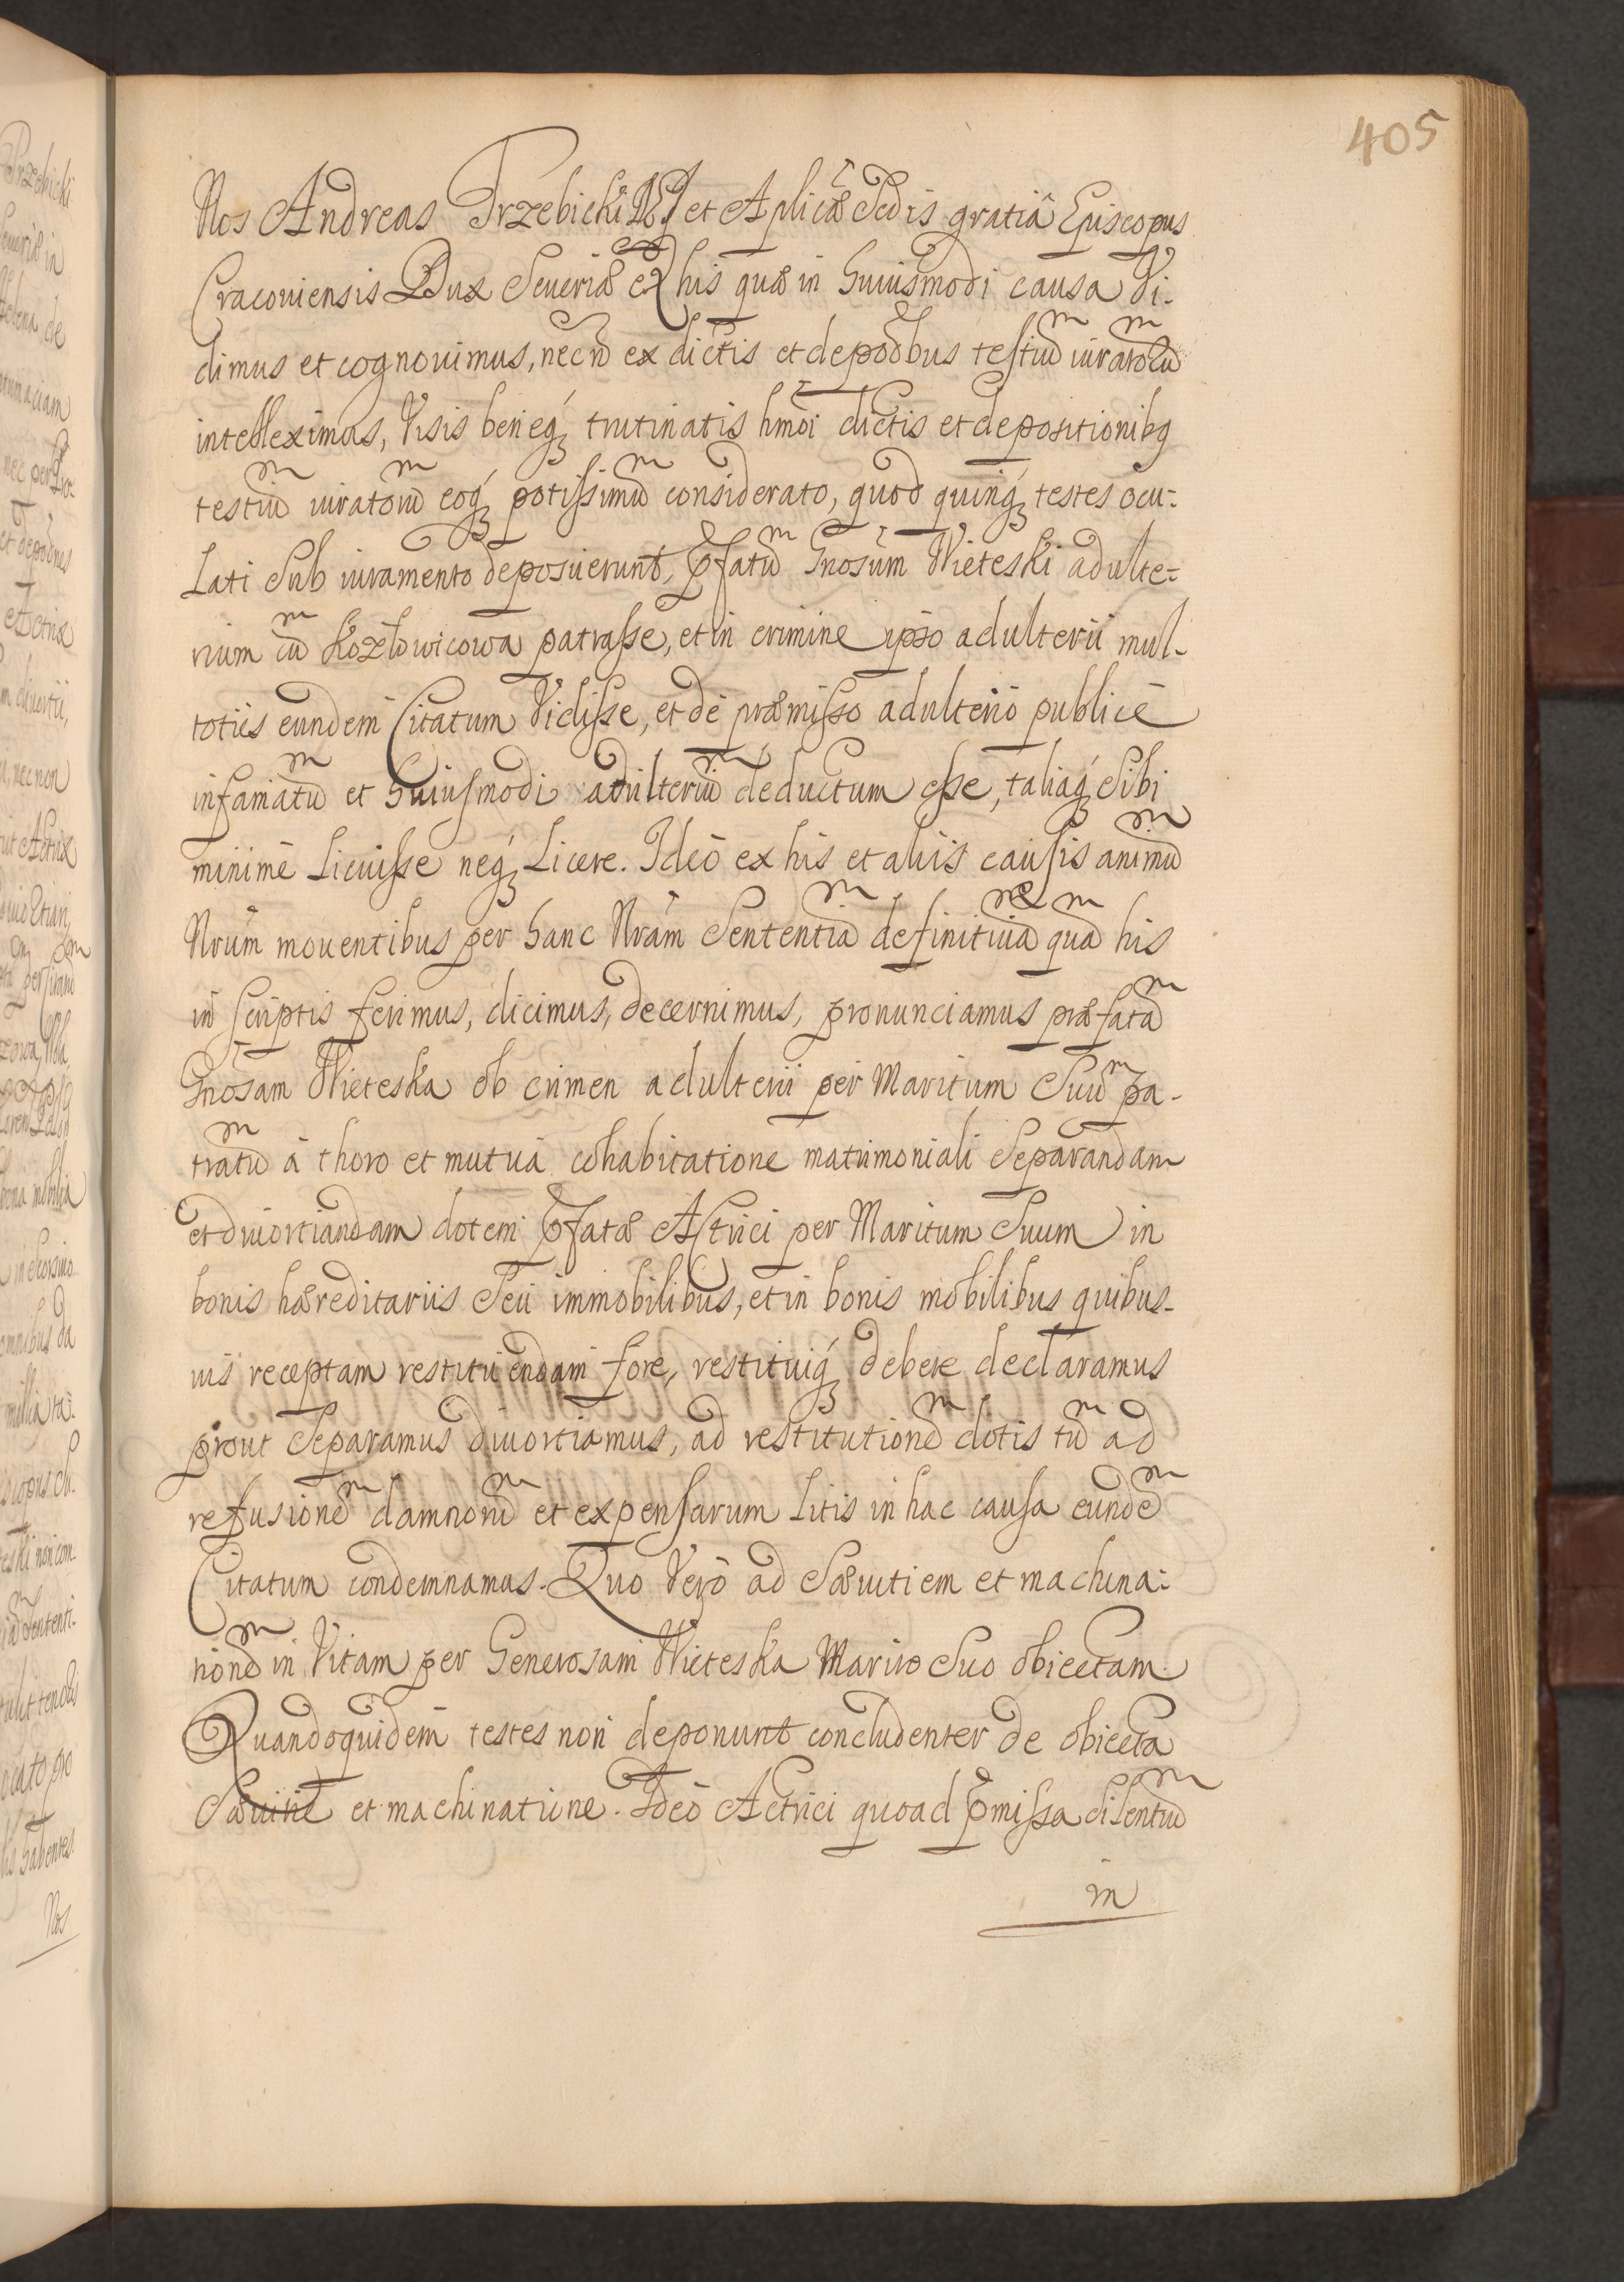 405
Nos Andreas Trzebicki DEI et Aplicæ Sedis gratiâ Episcopus
Cracouiensis Dux Seueriæ ex his quæ in huiusmodi causa Vi-
dimus et cognouimus, necñ ex dictis et depõõbus testiũ iuratorũ
intelleximus, Visis beneq́ꝫ trutinatis hmõi dictis et depositionibq
testiũ iuratorũ eoq́ꝫ potissimũ considerato, quod quinq́ꝫ testes ocu-
Lati Sub iuramento deposuerunt, Pfatũ Gnosũm Wieteski adulte-
rium cũ Kozłowicowa patrasse, et in crimine ipso adulterii mul-
toties eundem Citatum Vidisse, et de præmisso adulterio publice
infamatũ et huiusmodi adulteriũ deductum esse, taliaq́ꝫ Sibi
minimè Licuisse neq́ꝫ Licere. Ideò ex his et aliis causis animũ
Nrũm mouentibus per hanc Nrãm Sententiã definitiuã quã his
in scriptis ferimus, dicimus, decernimus, pronunciamus præfatã
Gnõsam Wieteska ob crimen adulterii per Maritum Suũ pa-
tratũ à thoro et mutuâ cohabitatione matrimoniali Separandam
et diuortiandam dotem Pfatæ Actrici per Maritum Suum in
bonis hæreditariis Seu immobilibus, et in bonis mobilibus quibus-
uis receptam restituendam fore, restituiq́ꝫ debere declaramus
prout Separamus diuortiamus, ad restitutionẽ dotis tũ ad
refusionẽ damnorũ et expensarum Litis in hac causa eundẽ
Citatum condemnamus. Quo Verò ad Sæuitiem et machina-
tionẽ in Vitam per Generosam Wieteska Marito Suo obiectam.
Quandoquidem testes non deponunt concludenter de obiecta
Sæuitie et machinatione. Ideò Actrici quoad Pmissa silentiũ
in